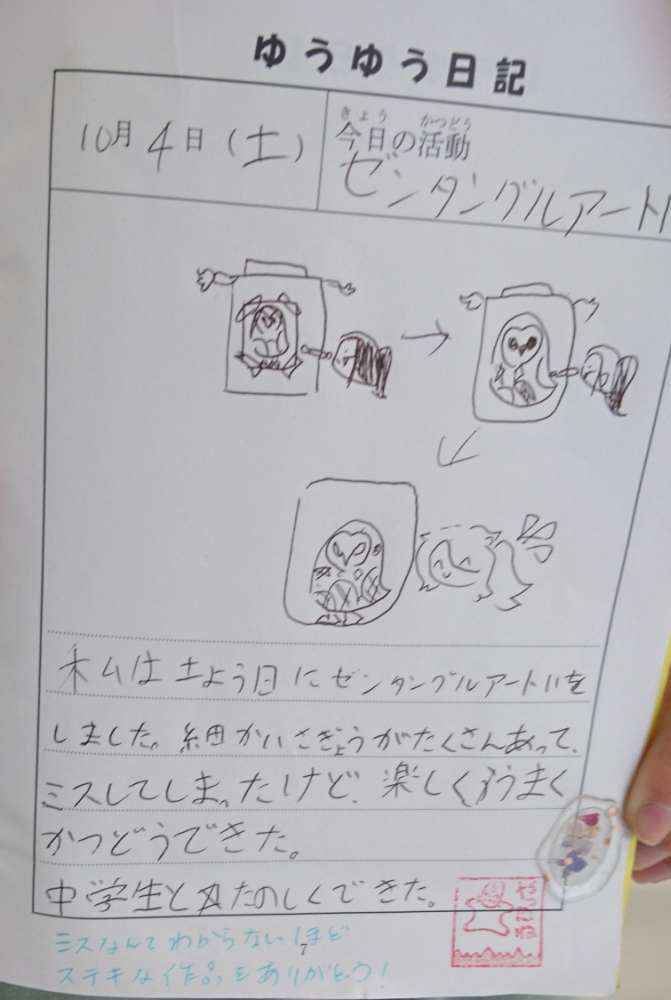 ゆうゆう日記
10月4日(土)
きょう かつどう
今日の活動
ゼンタングルアート
私は土よう日にゼンタングルアートを
しました。細かいさぎょうがたくさんあって、
ミスしてしまったけど、楽しくうまく
かつどうできた。
中学生とたのしくできた。
ミスなんてわからないほど
7
ステキな作品をありがとう!